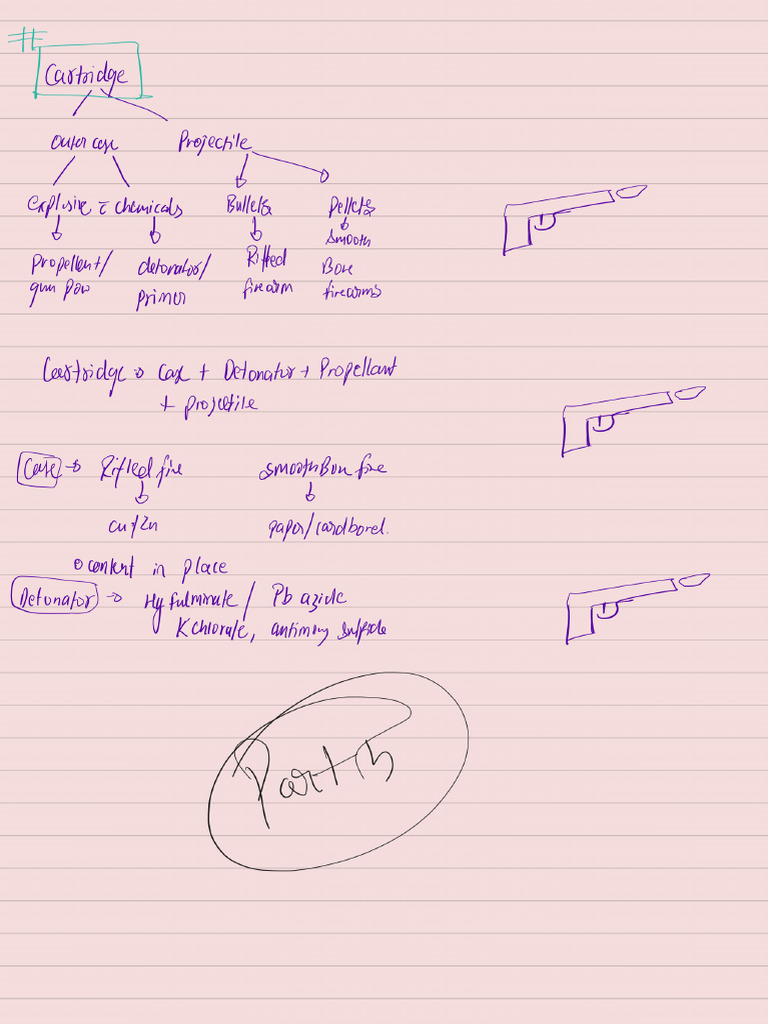 #
Cartridge
outer case Projectile
explosive c̄ chemicals Bullets Pellets
propellent/ detonator/ Rifled smooth
gun pow primer firearm Bore
firearms
Cartridge → Case + Detonator + Propellant
+ projectile
Case → Rifled fire smooth Bore fire
cu/zn paper/cardbored.
content in place
Detonator → Hg fulminate / Pb azide
K chlorate, antimony
Part 5